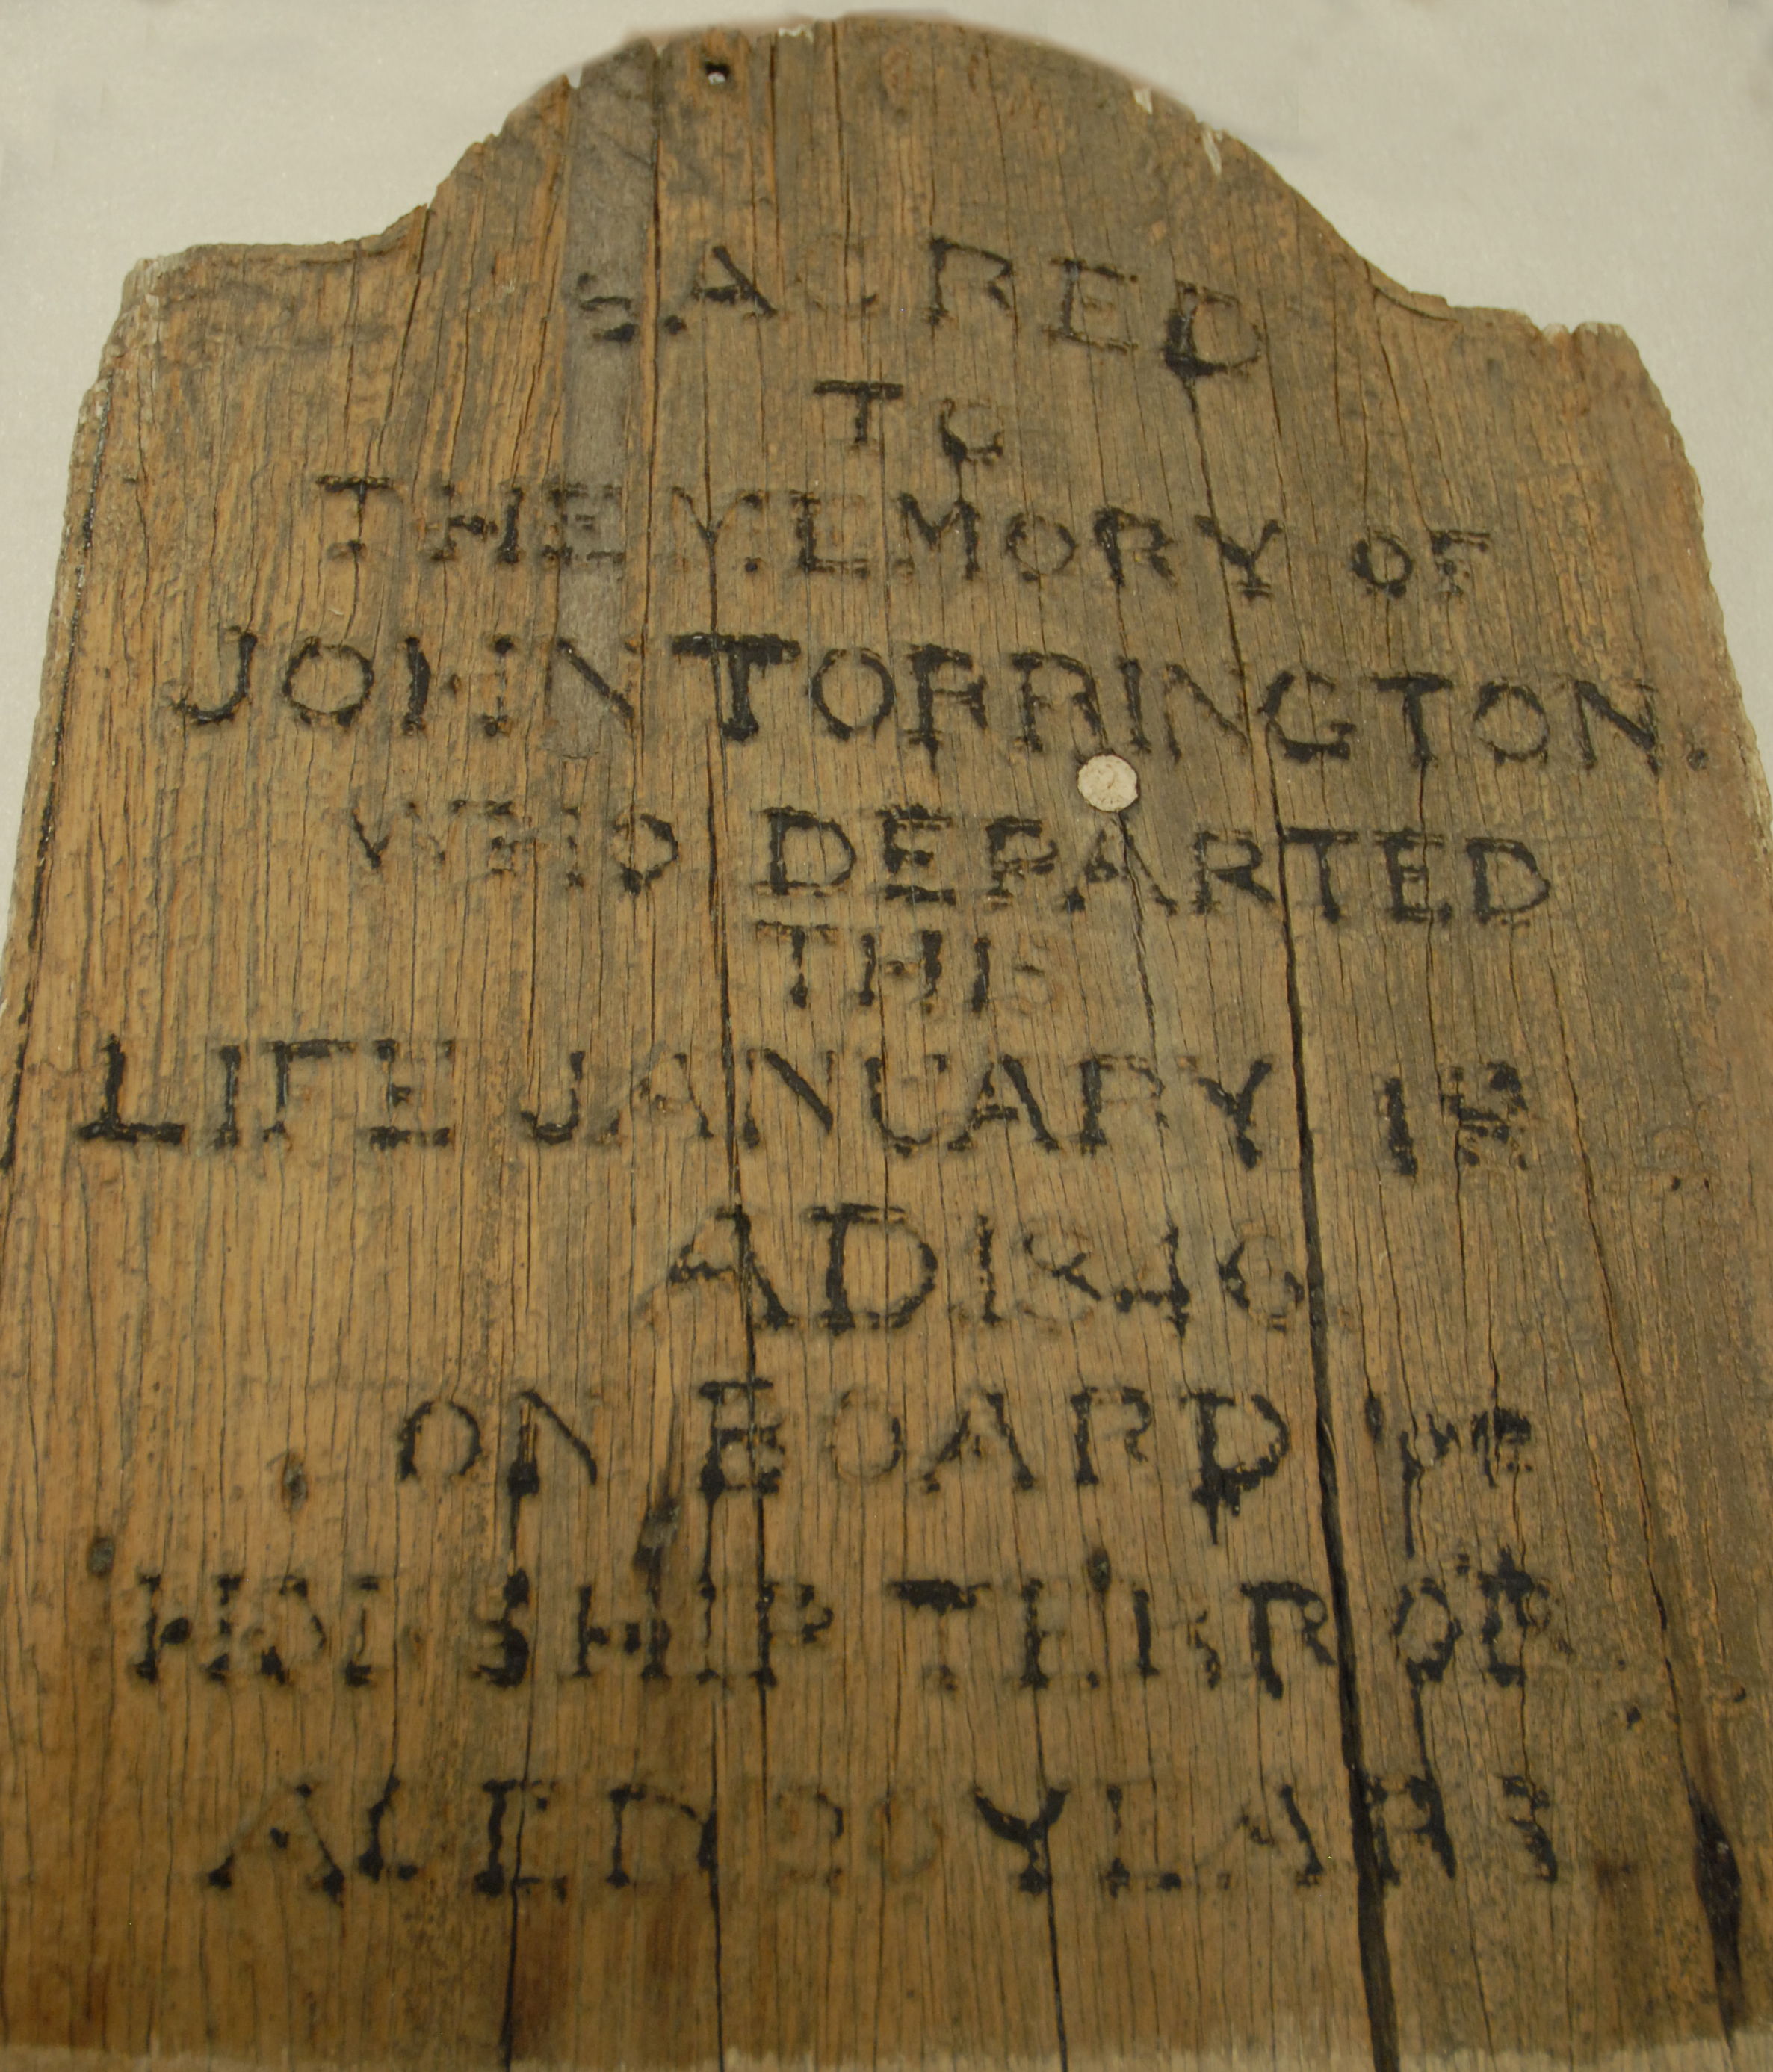 SACRED
TO
THE MEMORY OF
JOHN TORRINGTON.
WHO DEPARTED
THIS
LIFE JANUARY 1st
AD 1846.
ON BOARD OF
HM SHIP TERROR
AGED 20 YEARS